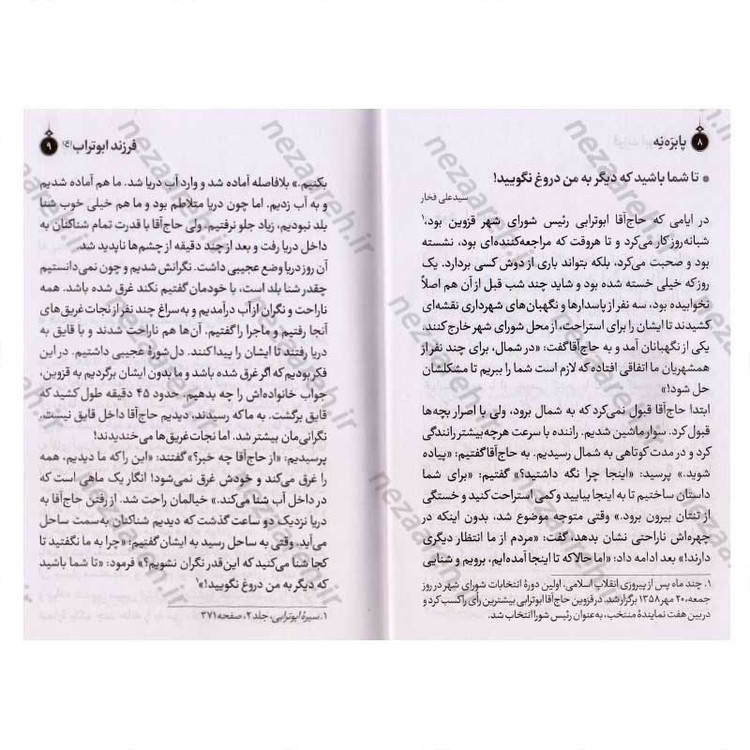 ۸ پابرَه‌نِه
تا شما باشید که دیگر به من دروغ نگویید!
سیدعلی فخار
در ایامی که حاج‌آقا ابوترابی رئیس شورای شهر قزوین بود،۱
شبانه‌روز کار می‌کرد و تا هروقت که مراجعه‌کننده‌ای بود، نشسته
بود و صحبت می‌کرد، بلکه بتواند باری از دوش کسی بردارد. یک
روز که خیلی خسته شده بود و شاید چند شب قبل از آن هم اصلاً
نخوابیده بود، سه نفر از پاسدارها و نگهبان‌های شهرداری نقشه‌ای
کشیدند تا ایشان را برای استراحت، از محل شورای شهر خارج کنند.
یکی از نگهبانان آمد و به حاج‌آقا گفت: «در شمال، برای چند نفر از
همشهریان ما اتفاقی افتاده که لازم است شما را ببریم تا مشکلشان
حل شود!»
ابتدا حاج‌آقا قبول نمی‌کرد که به شمال برود، ولی با اصرار بچه‌ها
قبول کرد. سوار ماشین شدیم. راننده با سرعت هرچه بیشتر رانندگی
کرد و در مدت کوتاهی به شمال رسیدیم. به حاج‌آقا گفتیم: «پیاده
شوید.» پرسید: «اینجا چرا نگه داشتید؟» گفتیم: «برای شما
داستان ساختیم تا به اینجا بیایید و کمی استراحت کنید و خستگی
از تنتان بیرون برود.» وقتی متوجه موضوع شد، بدون اینکه در
چهره‌اش ناراحتی نشان بدهد، گفت: «مردم از ما انتظار دیگری
دارند!» بعد ادامه داد: «اما حالا که تا اینجا آمده‌ایم، برویم و شنایی
۱. چند ماه پس از پیروزی انقلاب اسلامی، اولین دورهٔ انتخابات شورای شهر در روز
جمعه، ۲۰ مهر ۱۳۵۸ برگزار شد. در قزوین حاج‌آقا ابوترابی بیشترین رأی را کسب کرد و
در بین هفت نمایندهٔ منتخب، به‌عنوان رئیس شورا انتخاب شد.
فرزند ابوتراب ۹
بکنیم.» بلافاصله آماده شد و وارد آب دریا شد. ما هم آماده شدیم
و به آب زدیم. اما چون دریا متلاطم بود و ما هم خیلی خوب شنا
بلد نبودیم، زیاد جلو نرفتیم. ولی حاج‌آقا با قدرت تمام شناکنان به
داخل دریا رفت و بعد از چند دقیقه از چشم‌ها ناپدید شد.
آن روز دریا وضع عجیبی داشت. نگرانش شدیم و چون نمی‌دانستیم
چقدر شنا بلد است، با خودمان گفتیم نکند غرق شده باشد. همه
ناراحت و نگران از آب درآمدیم و به‌سراغ چند نفر از نجات‌غریق‌های
آنجا رفتیم و ماجرا را گفتیم. آن‌ها هم ناراحت شدند و با قایق به
دریا رفتند تا ایشان را پیدا کنند. دل‌شورهٔ عجیبی داشتیم. در این
فکر بودیم که اگر غرق شده باشد و ما بدون ایشان برگردیم به قزوین،
جواب خانواده‌اش را چه بدهیم. حدود ۴۵ دقیقه طول کشید که
قایق برگشت. به ما که رسیدند، دیدیم حاج‌آقا داخل قایق نیست.
نگرانی‌مان بیشتر شد. اما نجات‌غریق‌ها می‌خندیدند!
پرسیدیم: «از حاج‌آقا چه خبر؟» گفتند: «این را که ما دیدیم، همه
را غرق می‌کند و خودش غرق نمی‌شود! انگار یک ماهی است که
در داخل آب شنا می‌کند.» خیالمان راحت شد. از رفتن حاج‌آقا به
دریا نزدیک دو ساعت گذشت که دیدیم شناکنان به‌سمت ساحل
می‌آید. وقتی به ساحل رسید به ایشان گفتیم: «چرا به ما نگفتید تا
کجا شنا می‌کنید که این‌قدر نگران نشویم؟» فرمود: «تا شما باشید
که دیگر به من دروغ نگویید!»۱
۱. سیرهٔ ابوترابی، جلد ۲، صفحه ۳۷۱
nezaareh.ir